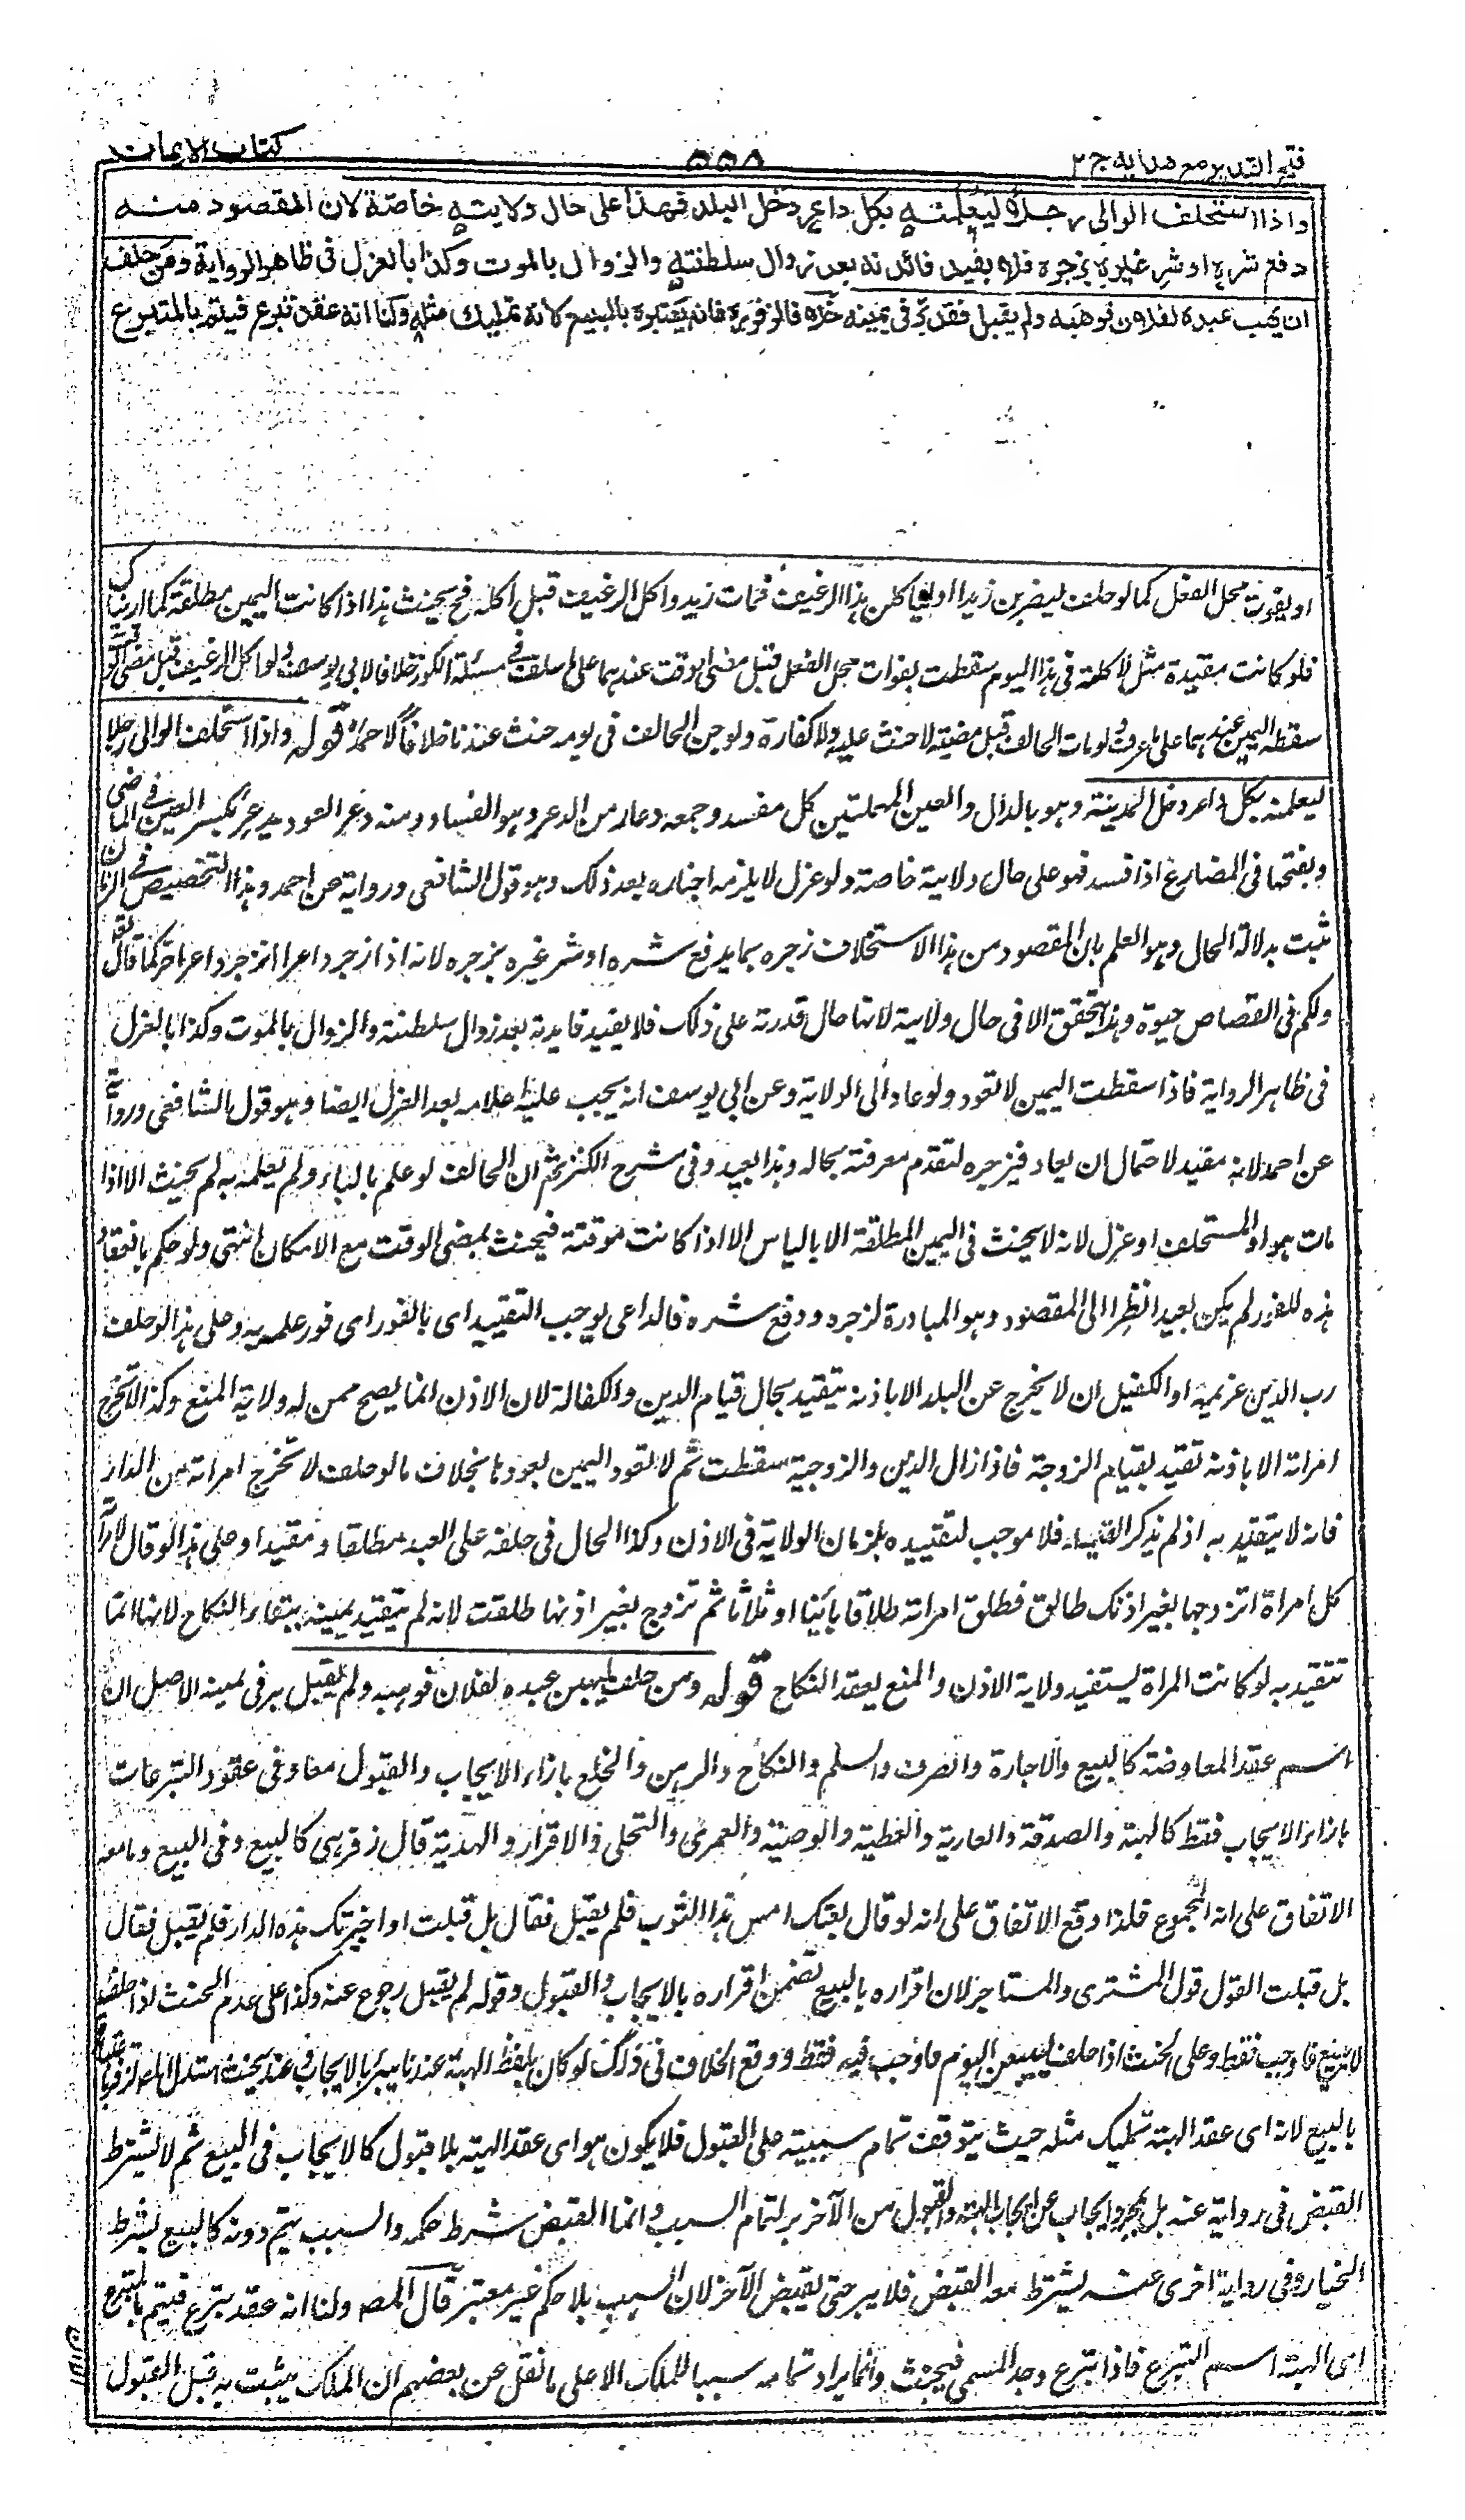 فتح القدير مع هدايه ج ٢
٥٥٨
كتاب الايمان
واذا استحلف الوالى رجلا ليعلمنه بكل داعر دخل البلد فهذا على حال ولايته خاصة لان المقصود منه
دفع شره او شر غيره بزجره فلا يفيد فائدته بعد زوال سلطنته والزوال بالموت وكذا بالعزل فى ظاهر الرواية ومن حلف
ان يهب عبده لفلان فوهبه ولم يقبل فقد بر فى يمينه خلافا لزفر فانه يعتبره بالبيع لانه تمليك مثله ولنا انه عقد تبرع فيتم بالمتبرع
او يفوت محل الفعل كما لو حلف ليضربن زيدا او ليأكلن هذا الرغيف فمات زيد واكل الرغيف قبل اكله فح يحنث هذا اذا كانت اليمين مطلقة كما اريناك
فلو كانت مقيدة مثل لآكلنه فى هذا اليوم سقطت بفوات محل الفعل قبل مضى الوقت عندهما على ما سلف فى مسئلة الكوز خلافا لابى يوسف ولو اكل الرغيف قبل مضى الوقت
سقط اليمين عندهما على ما عرف ولو مات الحالف قبل مضيه لا حنث عليه ولا كفارة ولو جن الحالف فى يومه حنث عندنا خلافا لاحمد قوله واذا استحلف الوالى رجلا
ليعلمنه بكل داعر دخل المدينة وهو بالدال والعين المهملتين كل مفسد وجمعه دعار من الدعر وهو الفساد ومنه دعر العود يدعر بكسر العين فى الماضى
وبفتحها فى المضارع اذا فسد فهو على حال ولايته خاصة ولو عزل لا يلزمه اخباره بعد ذلك وهو قول الشافعى ورواية عن احمد وهذا التخصيص فى الزمان
ثبت بدلالة الحال وهو العلم بان المقصود من هذا الاستحلاف زجره بما يدفع شره او شر غيره بزجره لانه اذا زجر داعرا انزجر داعر آخر كما قال تعه
ولكم فى القصاص حيوة وهذا يتحقق الا فى حال ولايته لانها حال قدرته على ذلك فلا يفيد فايدته بعد زوال سلطنته والزوال بالموت وكذا بالعزل
فى ظاهر الرواية فاذا سقطت اليمين لا تعود ولو عاد الى الولاية وعن ابى يوسف انه يجب عليه اعلامه بعد العزل ايضا وهو قول الشافعى ورواية
عن احمد لانه مفيد لاحتمال ان يعاد فيزجره لتقدم معرفته بحاله وهذا بعيد وفى شرح الكنز ثم ان الحالف لو علم بالداعر ولم يعلمه به لم يحنث الا اذا
مات هو او المستحلف او عزل لانه لا يحنث فى اليمين المطلقة الا بالياس الا اذا كانت موقتة فيحنث بمضى الوقت مع الامكان انتهى ولو حكم بانعقاد
هذه للفور لم يكن بعيدا نظرا الى المقصود وهو المبادرة لزجره ودفع شره فالداعى يوجب التقييد اى بالفور اى فور علمه به وعلى هذا لو حلف
رب الدين غريمه او الكفيل ان لا يخرج عن البلد الا باذنه يتقيد بحال قيام الدين والكفالة لان الاذن انما يصح ممن له ولاية المنع وكذا لا تخرج
امراته الا باذنه تقيد بقيام الزوجة فاذا زال الدين والزوجية سقطت ثم لا تعود اليمين بعودها بخلاف ما لو حلف لا تخرج امراته من الدار
فانه لا يتقيد به اذ لم يذكر الاذن فلا موجب لتقييده بزمان الولاية فى الاذن وكذا الحال فى حلفه على العبد مطلقا ومقيدا وعلى هذا لو قال لامرأته
كل امراة اتزوجها بغير اذنك طالق فطلق امراته طلاقا بائنا او ثلاثا ثم تزوج بغير اذنها طلقت لانه لم يتقيد يمينه ببقاء النكاح لانها انما
تتقيد به لو كانت المراة تستفيد ولاية الاذن والمنع بعقد النكاح قوله ومن حلف ليهبن عبده لفلان فوهبه ولم يقبل بر فى يمينه الاصل ان
اسم عقد المعاوضة كالبيع والاجارة والصرف والسلم والنكاح والرهن والخلع بازاء الايجاب والقبول معا وفى عقود التبرعات
بازاء الايجاب فقط كالهبة والصدقة والعارية والعطية والوصية والعمرى والنحلى والاقرار والهدية قال زفر هى كالبيع وفى البيع وما معه
الاتفاق على انه المجموع فلذا وقع الاتفاق على انه لو قال بعتك امس هذا الثوب فلم يقبل فقال بل قبلت او اجرتك هذه الدار فلم يقبل فقال
بل قبلت القول قول المشترى والمستاجر لان اقراره بالبيع تضمن اقراره بالايجاب والقبول وقوله لم يقبل رجوع عنه وكذا على عدم الحنث اذا حلف
لا يبيع فاوجب فقط وعلى الحنث اذا حلف ليبيعن اليوم فاوجب فيه فقط ووقع الخلاف فى ذلك لو كان بلفظ الهبة عندنا يبر بالايجاب
بالبيع لانه اى عقد الهبة تمليك مثله حيث يتوقف تمام سببيته على القبول فلا يكون هو اى عقد الهبة بلا قبول كالايجاب فى البيع ثم لا يشترط
القبض فى رواية عنه بل بمجرد ايجاب والقبول من الآخر يبر لتمام السبب وانما القبض شرط حكمه والسبب يتم دونه كالبيع بشرط
الخيار وفى رواية اخرى عنه يشترط معه القبض فلا يبر حتى يقبض الآخر لان السبب بلا حكم غير معتبر قال المصـ ولنا انه عقد تبرع فيتم بالمتبرع
اى الهبة اسم التبرع فاذا تبرع وجد المسمى فيحنث وانما يراد تمامه سببا للملك الا على ما نقل عن بعضهم ان الملك يثبت به قبل القبول